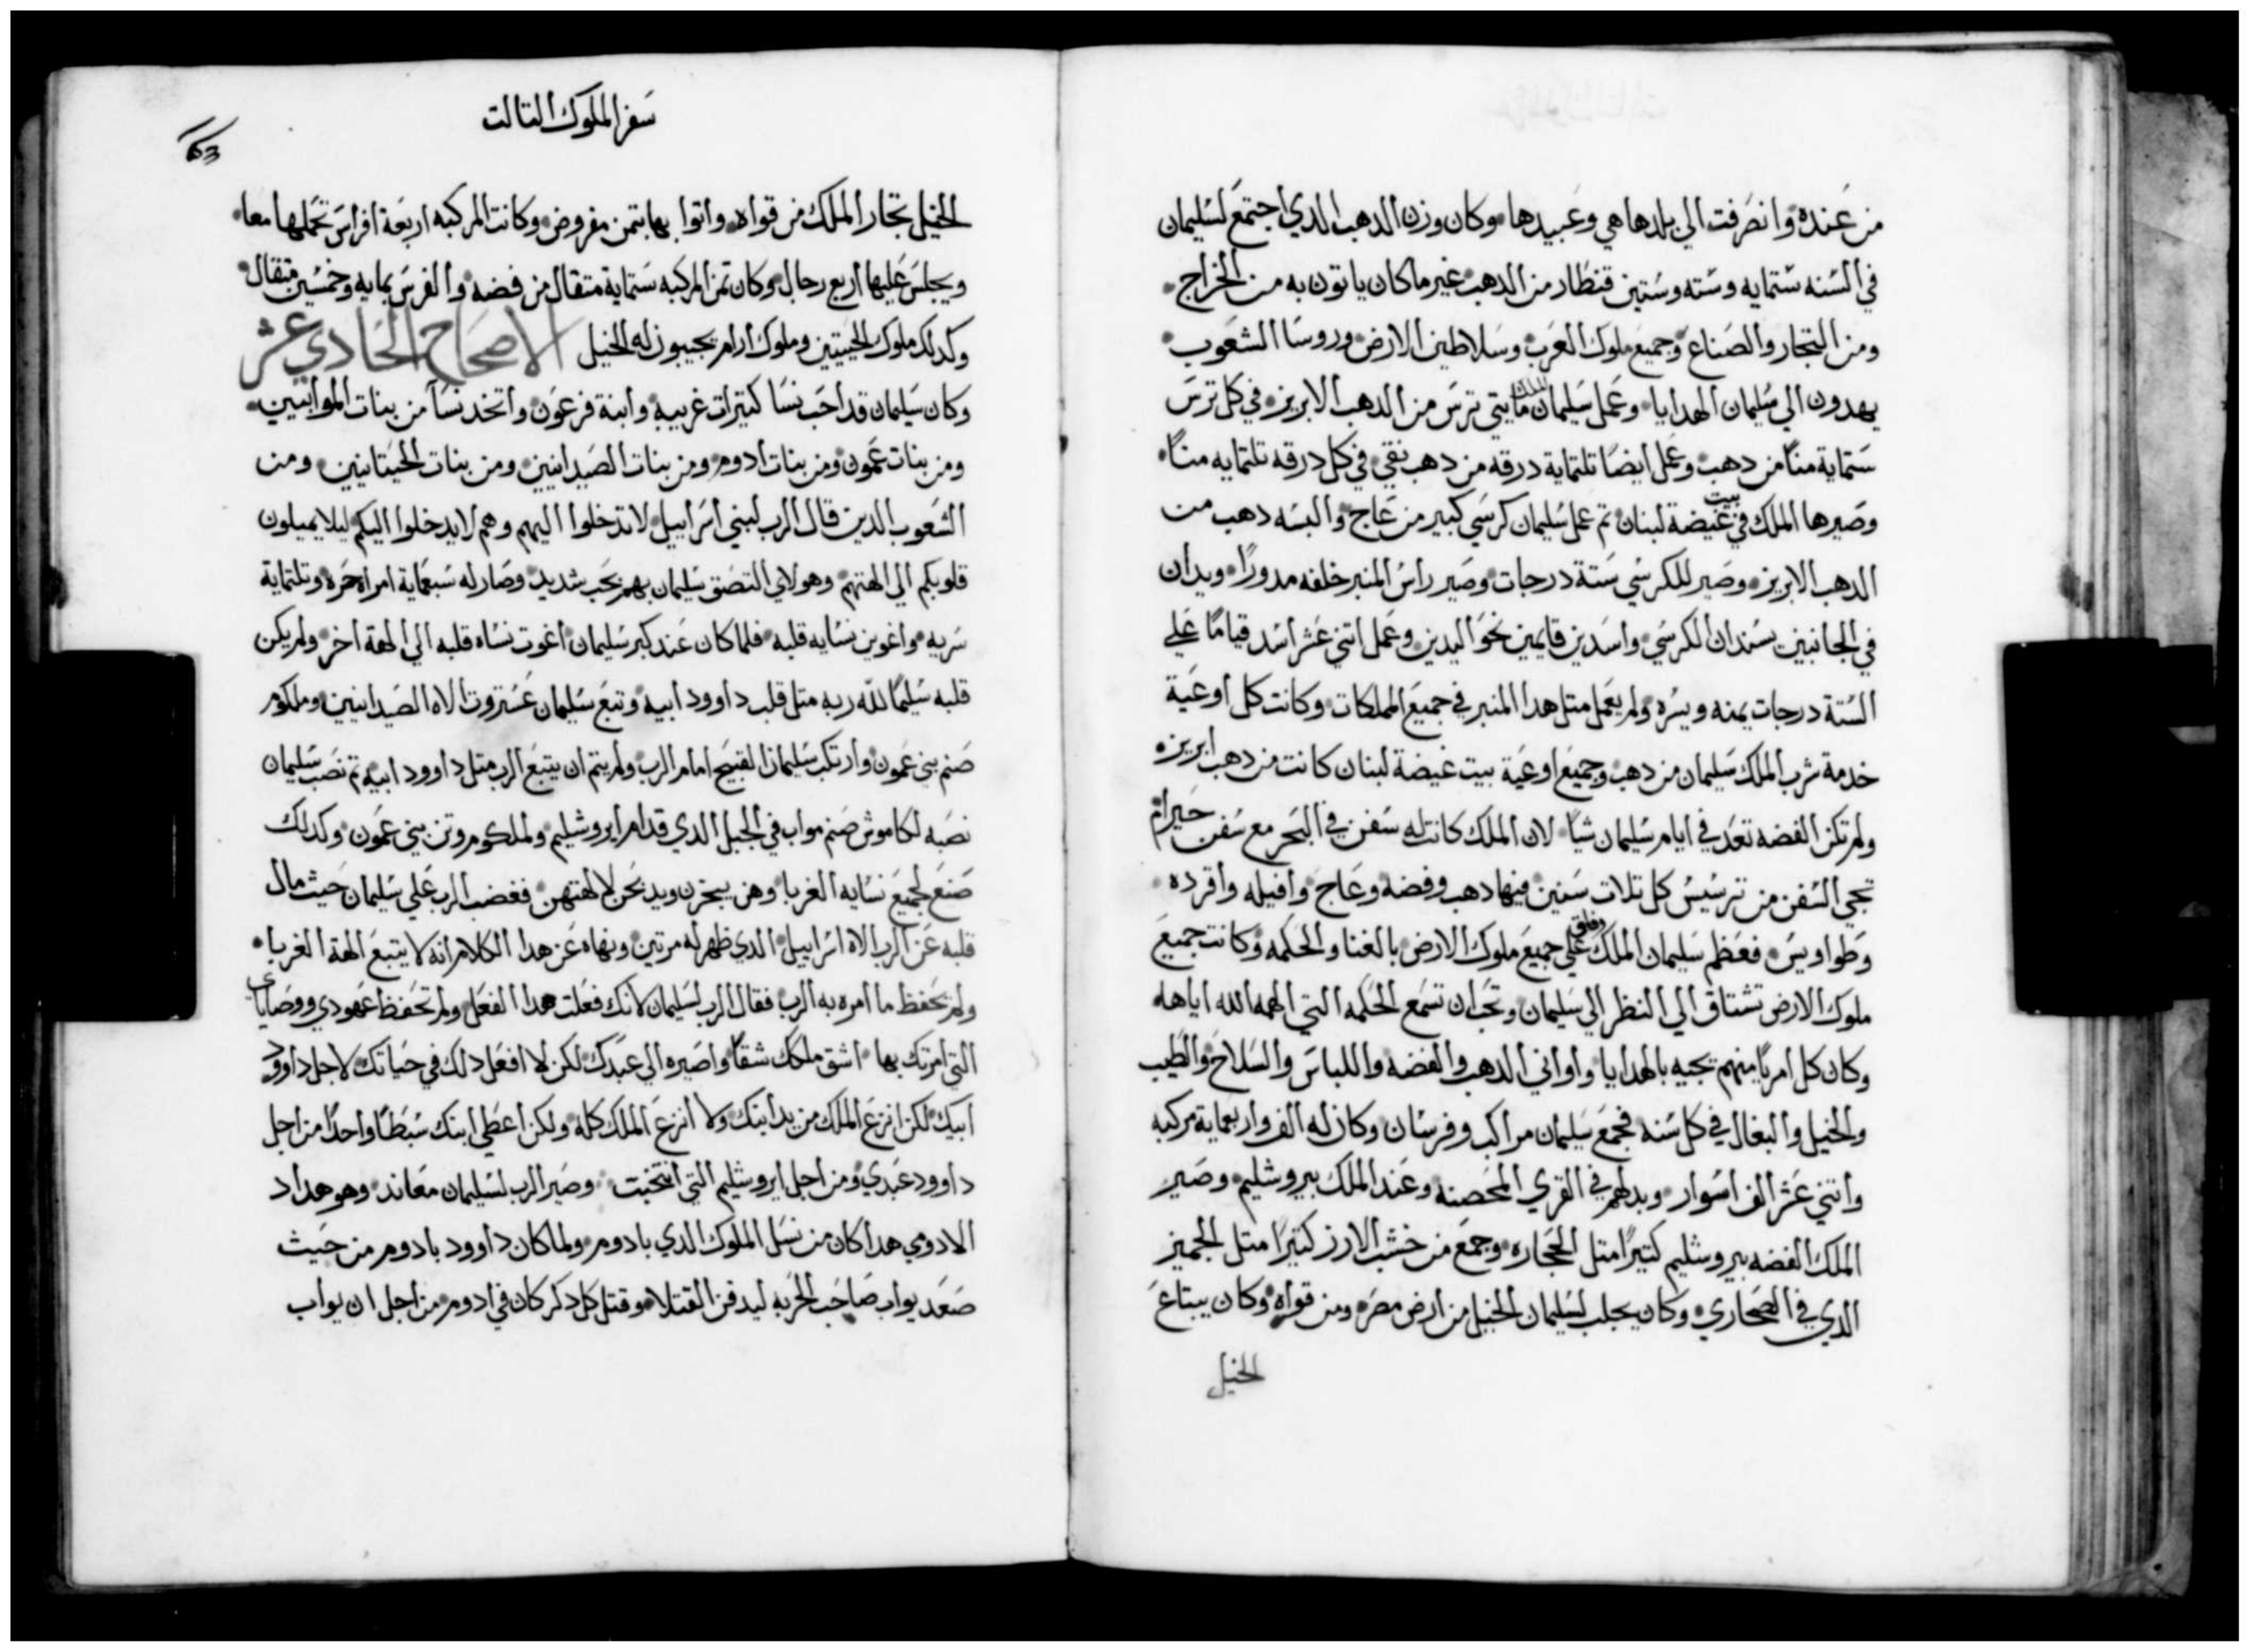 من عنده وانصرفت الي بلدها هي وعبيدها وكان وزن الدهب الدي اجتمع لسليمان
في السنه ستمايه وسته وستين قنطار من الدهب غير ما كان ياتون به من الخراج
ومن التجار والصناع وجميع ملوك العرب وسلاطين الارض وروسا الشعوب
يهدون الي سليمان الهدايا وعمل سليمان الملك مايتي ترس من الدهب الابريز في كل ترس
ستماية منا من دهب وعمل ايضا تلتماية درقه من دهب نقي في كل درقه تلتمايه منا
وصيرها الملك في بيت غيضة لبنان تم عمل سليمان كرسي كبير من عاج والبسه دهب من
الدهب الابريز وصير للكرسي ستة درجات وصير راس المنبر خلفه مدورا ويدان
في الجانبين يسندان الكرسي واسدين قايمين نحو اليدين وعمل اتني عشر اسد قياما علي
الستة درجات يمنه ويسره ولم يعمل متل هدا المنبر في جميع المملكات وكانت كل اوعية
خدمة شرب الملك سليمان من دهب وجميع اوعية بيت غيضة لبنان كانت من دهب ابريز
ولم تكن الفضه تعد في ايام سليمان شيا لان الملك كانت له سفن في البحر مع سفن حيرام
تجي السفن من ترسيس كل تلات سنين فيها دهب وفضه وعاج وافيله واقرده
وطواويس فعظم سليمان الملك وفاق علي جميع ملوك الارض بالغنا والحكمه وكانت جميع
ملوك الارض تشتاق الي النظر الي سليمان وتحب ان تسمع الحكمه التي الهمه الله اياها
وكان كل امريا منهم تجيه بالهدايا واواني الدهب والفضه واللباس والسلاح والطيب
والخيل والبغال في كل سنه فجمع سليمان مراكب وفرسان وكان له الف واربعماية مركبه
واتني عشر الف اسوار وبدلهم في القري المحصنه وعند الملك بيروشليم وصير
الملك الفضه بيروشليم كتيرا متل الحجاره وجمع من خشب الارز كتيرا متل الجميز
الدي في الصحاري وكان يجلب لسليمان الخيل من ارض مصر ومن قواه وكان يبتاع
الخيل
سفر الملوك التالت
63
الخيل تجار الملك من قواه واتوا بها بتمن مفروض وكانت المركبه اربعة افراس تحملها معا
ويجلس عليها اربع رجال وكان تمن المركبه ستماية متقال من فضه والفرس بمايه وخمسين متقال
وكدلك ملوك الحيتيين وملوك ارام يجيبون له الخيل الاصحاح الحادي عشر
وكان سليمان قد احب نسا كتيرات غريبه وابنة فرعون واتخد نسا من بنات الموابيين
ومن بنات عمون ومن بنات ادوم ومن بنات الصيدانيين ومن بنات الحيتانيين ومن
الشعوب الدين قال الرب لبني اسراييل لا تدخلوا اليهم وهم لا يدخلوا اليكم ليلا يميلون
قلوبكم الي الهتهم وهولاي التصق سليمان بهم بحب شديد وصار له سبعماية امراه حره وتلتماية
سريه واغوين نسايه قلبه فلما كان عند كبر سليمان اغوت نساه قلبه الي الهة اخر ولم يكن
قلبه سليما لله ربه متل قلب داوود ابيه وتبع سليمان عستروت الاه الصيدانيين وملكوم
صنم بني عمون وارتكب سليمان القبيح امام الرب ولم يتم ان يتبع الرب متل داوود ابيه تم نصب سليمان
نصبه لكاموش صنم مواب في الجبل الدي قدام ايروشليم ولملكوم وتن بني عمون وكدلك
صنع لجميع نسايه الغربا وهن يبخرن ويدبحن لالهتهن فغضب الرب علي سليمان حيث مال
قلبه عن الرب الاه اسراييل الدي ظهر له مرتين ونهاه عن هدا الكلام انه لا يتبع الهة الغربا
ولم يحفظ ما امره به الرب فقال الرب لسليمان لانك فعلت هدا الفعل ولم تحفظ عهودي ووصاياي
التي امرتك بها اشق ملكك شقا واصيره الي عبدك لكن لا افعل دلك في حياتك لاجل داوود
ابيك لكن انزع الملك من يد ابنك ولا انزع الملك كله ولكن اعطي ابنك سبطا واحدا من اجل
داوود عبدي ومن اجل ايروشليم التي انتخبت وصير الرب لسليمان معاند وهو هداد
الادومي هدا كان من نسل الملوك الدي بادوم ولما كان داوود بادوم من حيث
صعد يواب صاحب الحربه ليدفن القتلا وقتل كل دكر كان في ادوم من اجل ان يواب